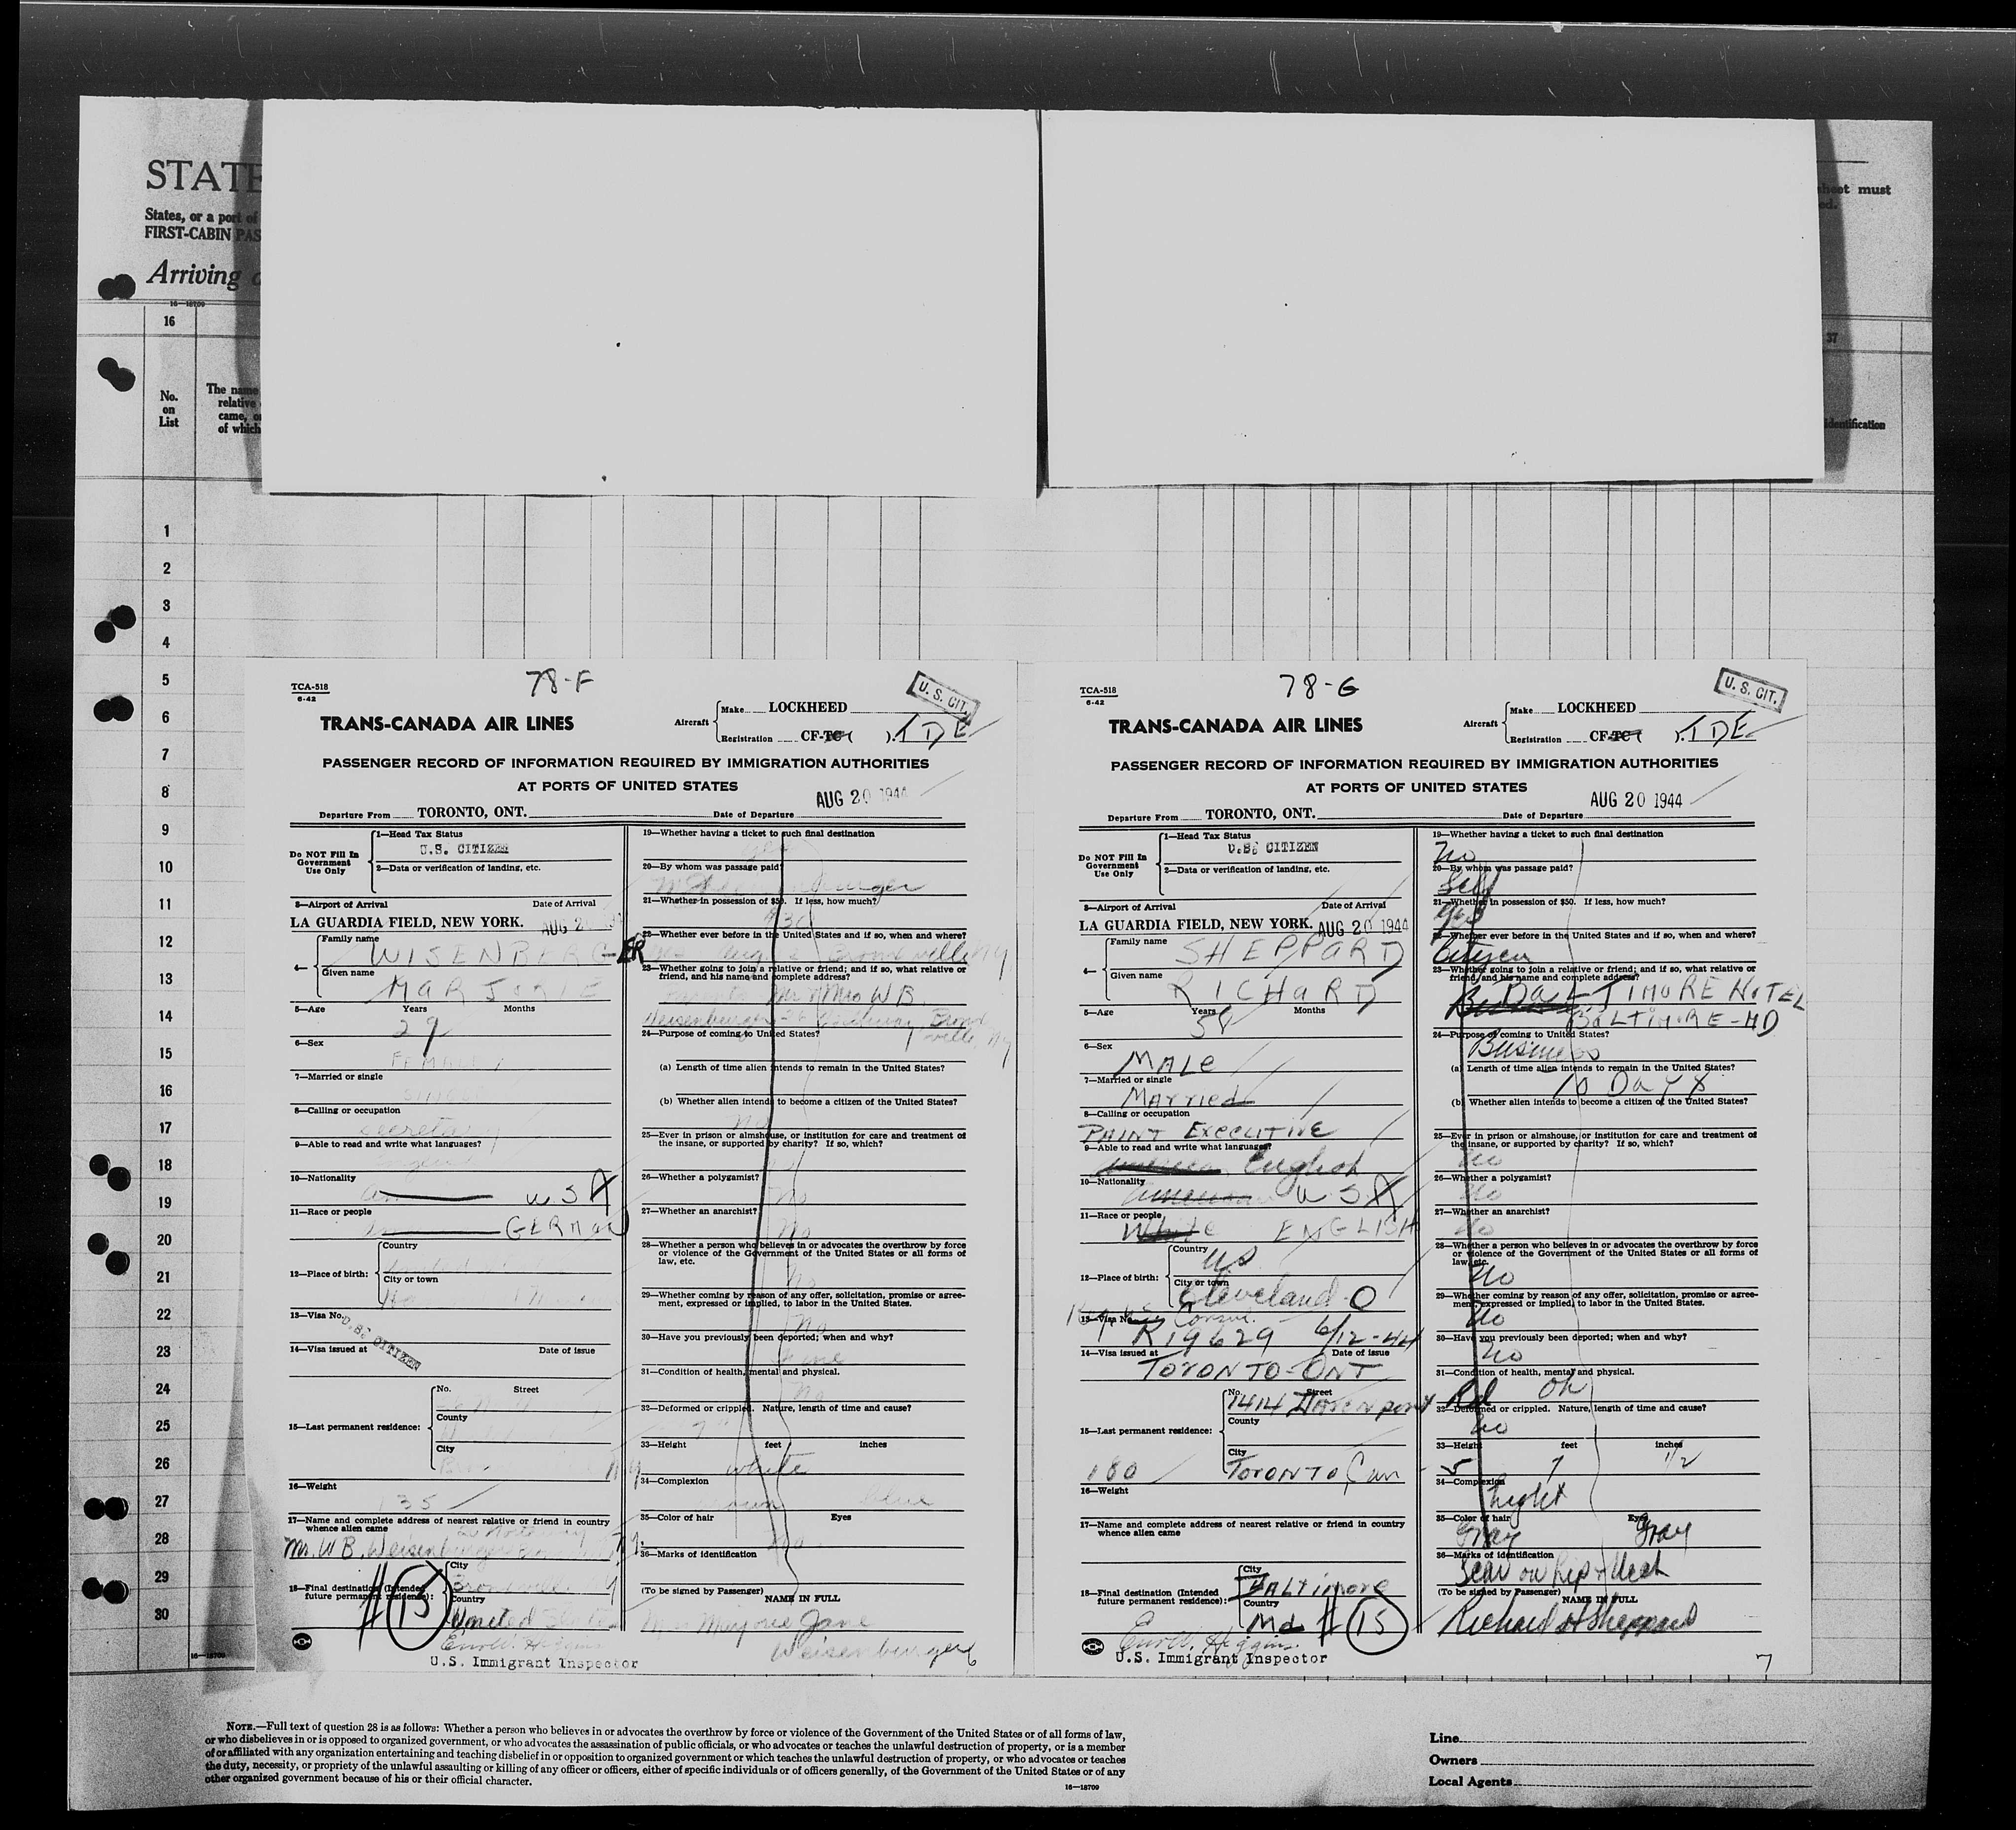 STATE
States, or a port of
FIRST-CABIN PAS
Arriving
16—18709
16
No.
on
List
The name
relative
came, o
of which
sheet must
ed.
37
identification
1
2
3
4
5
6
7
8
9
10
11
12
13
14
15
16
17
18
19
20
21
22
23
24
25
26
27
28
29
30
16—18709
78-F
TCA-518
6-42
U. S. CIT.
TRANS-CANADA AIR LINES
Aircraft
Make LOCKHEED
Registration CF-TC-( ). TDE
PASSENGER RECORD OF INFORMATION REQUIRED BY IMMIGRATION AUTHORITIES
AT PORTS OF UNITED STATES
AUG 20 1944
Departure From TORONTO, ONT. Date of Departure
Do NOT Fill In
Government
Use Only
1—Head Tax Status
U.S. CITIZEN
2—Data or verification of landing, etc.
3—Airport of Arrival Date of Arrival
LA GUARDIA FIELD, NEW YORK. AUG 20
4—
Family name
WISENBERG-ER
Given name
MARJORIE
5—Age Years Months
29
6—Sex
FEMALE
7—Married or single
8—Calling or occupation
Secretary
9—Able to read and write what languages?
10—Nationality
U S A
11—Race or people
GERMAN
12—Place of birth:
Country
City or town
13—Visa No.
U.S. CITIZEN
14—Visa issued at Date of issue
15—Last permanent residence:
No. Street
County
City
N.Y.
16—Weight
135
17—Name and complete address of nearest relative or friend in country
whence alien came
Mr. W B. Weisenburger
18—Final destination (Intended
future permanent residence):
City
Country
United States
# 15
U.S. Immigrant Inspector
19—Whether having a ticket to such final destination
yes
20—By whom was passage paid?
21—Whether in possession of $50. If less, how much?
22—Whether ever before in the United States and if so, when and where?
23—Whether going to join a relative or friend; and if so, what relative or
friend, and his name and complete address?
Mr & Mrs W B.
Weisenburger
24—Purpose of coming to United States?
(a) Length of time alien intends to remain in the United States?
(b) Whether alien intends to become a citizen of the United States?
No
25—Ever in prison or almshouse, or institution for care and treatment of
the insane, or supported by charity? If so, which?
26—Whether a polygamist?
No
27—Whether an anarchist?
No
28—Whether a person who believes in or advocates the overthrow by force
or violence of the Government of the United States or all forms of
law, etc.
No
29—Whether coming by reason of any offer, solicitation, promise or agree-
ment, expressed or implied, to labor in the United States.
No
30—Have you previously been deported; when and why?
31—Condition of health, mental and physical.
No
32—Deformed or crippled. Nature, length of time and cause?
33—Height feet inches
white
34—Complexion
blue
35—Color of hair Eyes
36—Marks of identification
(To be signed by Passenger) NAME IN FULL
Marjorie Jane
Weisenburger
78-G
TCA-518
6-42
U. S. CIT.
TRANS-CANADA AIR LINES
Aircraft
Make LOCKHEED
Registration CF-TC-( ). TDE
PASSENGER RECORD OF INFORMATION REQUIRED BY IMMIGRATION AUTHORITIES
AT PORTS OF UNITED STATES
AUG 20 1944
Departure From TORONTO, ONT. Date of Departure
Do NOT Fill In
Government
Use Only
1—Head Tax Status
U.S. CITIZEN
2—Data or verification of landing, etc.
3—Airport of Arrival Date of Arrival
LA GUARDIA FIELD, NEW YORK. AUG 20 1944
4—
Family name
SHEPPARD
Given name
RICHARD
5—Age Years Months
58
6—Sex
MALE
7—Married or single
Married
8—Calling or occupation
PAINT EXECUTIVE
9—Able to read and write what languages?
English
10—Nationality
American U S A
11—Race or people
White ENGLISH
12—Place of birth:
Country
US
City or town
Cleveland O
13—Visa No.
R19629 6/12-44
14—Visa issued at Date of issue
TORONTO-ONT
15—Last permanent residence:
No. Street
1414 Davenport
County
City
TORONTO, Can
180
16—Weight
17—Name and complete address of nearest relative or friend in country
whence alien came
18—Final destination (Intended
future permanent residence):
City
BALTIMORE
Country
Md # 15
U.S. Immigrant Inspector
19—Whether having a ticket to such final destination
No
20—By whom was passage paid?
Self
21—Whether in possession of $50. If less, how much?
Yes
22—Whether ever before in the United States and if so, when and where?
Citizen
23—Whether going to join a relative or friend; and if so, what relative or
friend, and his name and complete address?
BALTIMORE HOTEL
BALTIMORE-MD
24—Purpose of coming to United States?
Business
(a) Length of time alien intends to remain in the United States?
10 Days
(b) Whether alien intends to become a citizen of the United States?
25—Ever in prison or almshouse, or institution for care and treatment of
the insane, or supported by charity? If so, which?
No
26—Whether a polygamist?
No
27—Whether an anarchist?
No
28—Whether a person who believes in or advocates the overthrow by force
or violence of the Government of the United States or all forms of
law, etc.
No
29—Whether coming by reason of any offer, solicitation, promise or agree-
ment, expressed or implied, to labor in the United States.
No
30—Have you previously been deported; when and why?
No
31—Condition of health, mental and physical.
OK
32—Deformed or crippled. Nature, length of time and cause?
No
33—Height feet inches
5 7 1/2
34—Complexion
Light
35—Color of hair Eyes
Gray Gray
36—Marks of identification
Scar on Lip & Neck
(To be signed by Passenger) NAME IN FULL
Richard H Sheppard
7
NOTE.—Full text of question 28 is as follows: Whether a person who believes in or advocates the overthrow by force or violence of the Government of the United States or of all forms of law,
or who disbelieves in or is opposed to organized government, or who advocates the assassination of public officials, or who advocates or teaches the unlawful destruction of property, or is a member
of or affiliated with any organization entertaining and teaching disbelief in or opposition to organized government or which teaches the unlawful destruction of property, or who advocates or teaches
the duty, necessity, or propriety of the unlawful assaulting or killing of any officer or officers, either of specific individuals or of officers generally, of the Government of the United States or of any
other organized government because of his or their official character.
16—18709
Line
Owners
Local Agents